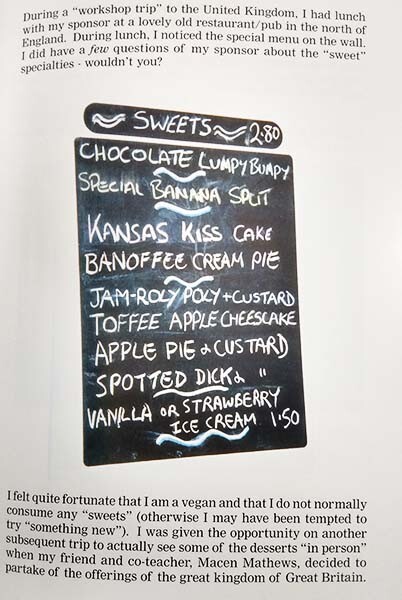 During a “workshop trip” to the United Kingdom, I had lunch
with my sponsor at a lovely old restaurant/pub in the north of
England. During lunch, I noticed the special menu on the wall.
I did have a few questions of my sponsor about the “sweet”
specialties - wouldn't you?
SWEETS 2.80
CHOCOLATE LUMPY BUMPY
SPECIAL BANANA SPLIT
KANSAS KISS CAKE
BANOFFEE CREAM PIE
JAM-ROLY POLY + CUSTARD
TOFFEE APPLE CHEESCAKE
APPLE PIE & CUSTARD
SPOTTED DICK & "
VANILLA OR STRAWBERRY
ICE CREAM 1.50
I felt quite fortunate that I am a vegan and that I do not normally
consume any “sweets” (otherwise I may have been tempted to
try “something new”). I was given the opportunity on another
subsequent trip to actually see some of the desserts “in person”
when my friend and co-teacher, Macen Mathews, decided to
partake of the offerings of the great kingdom of Great Britain.